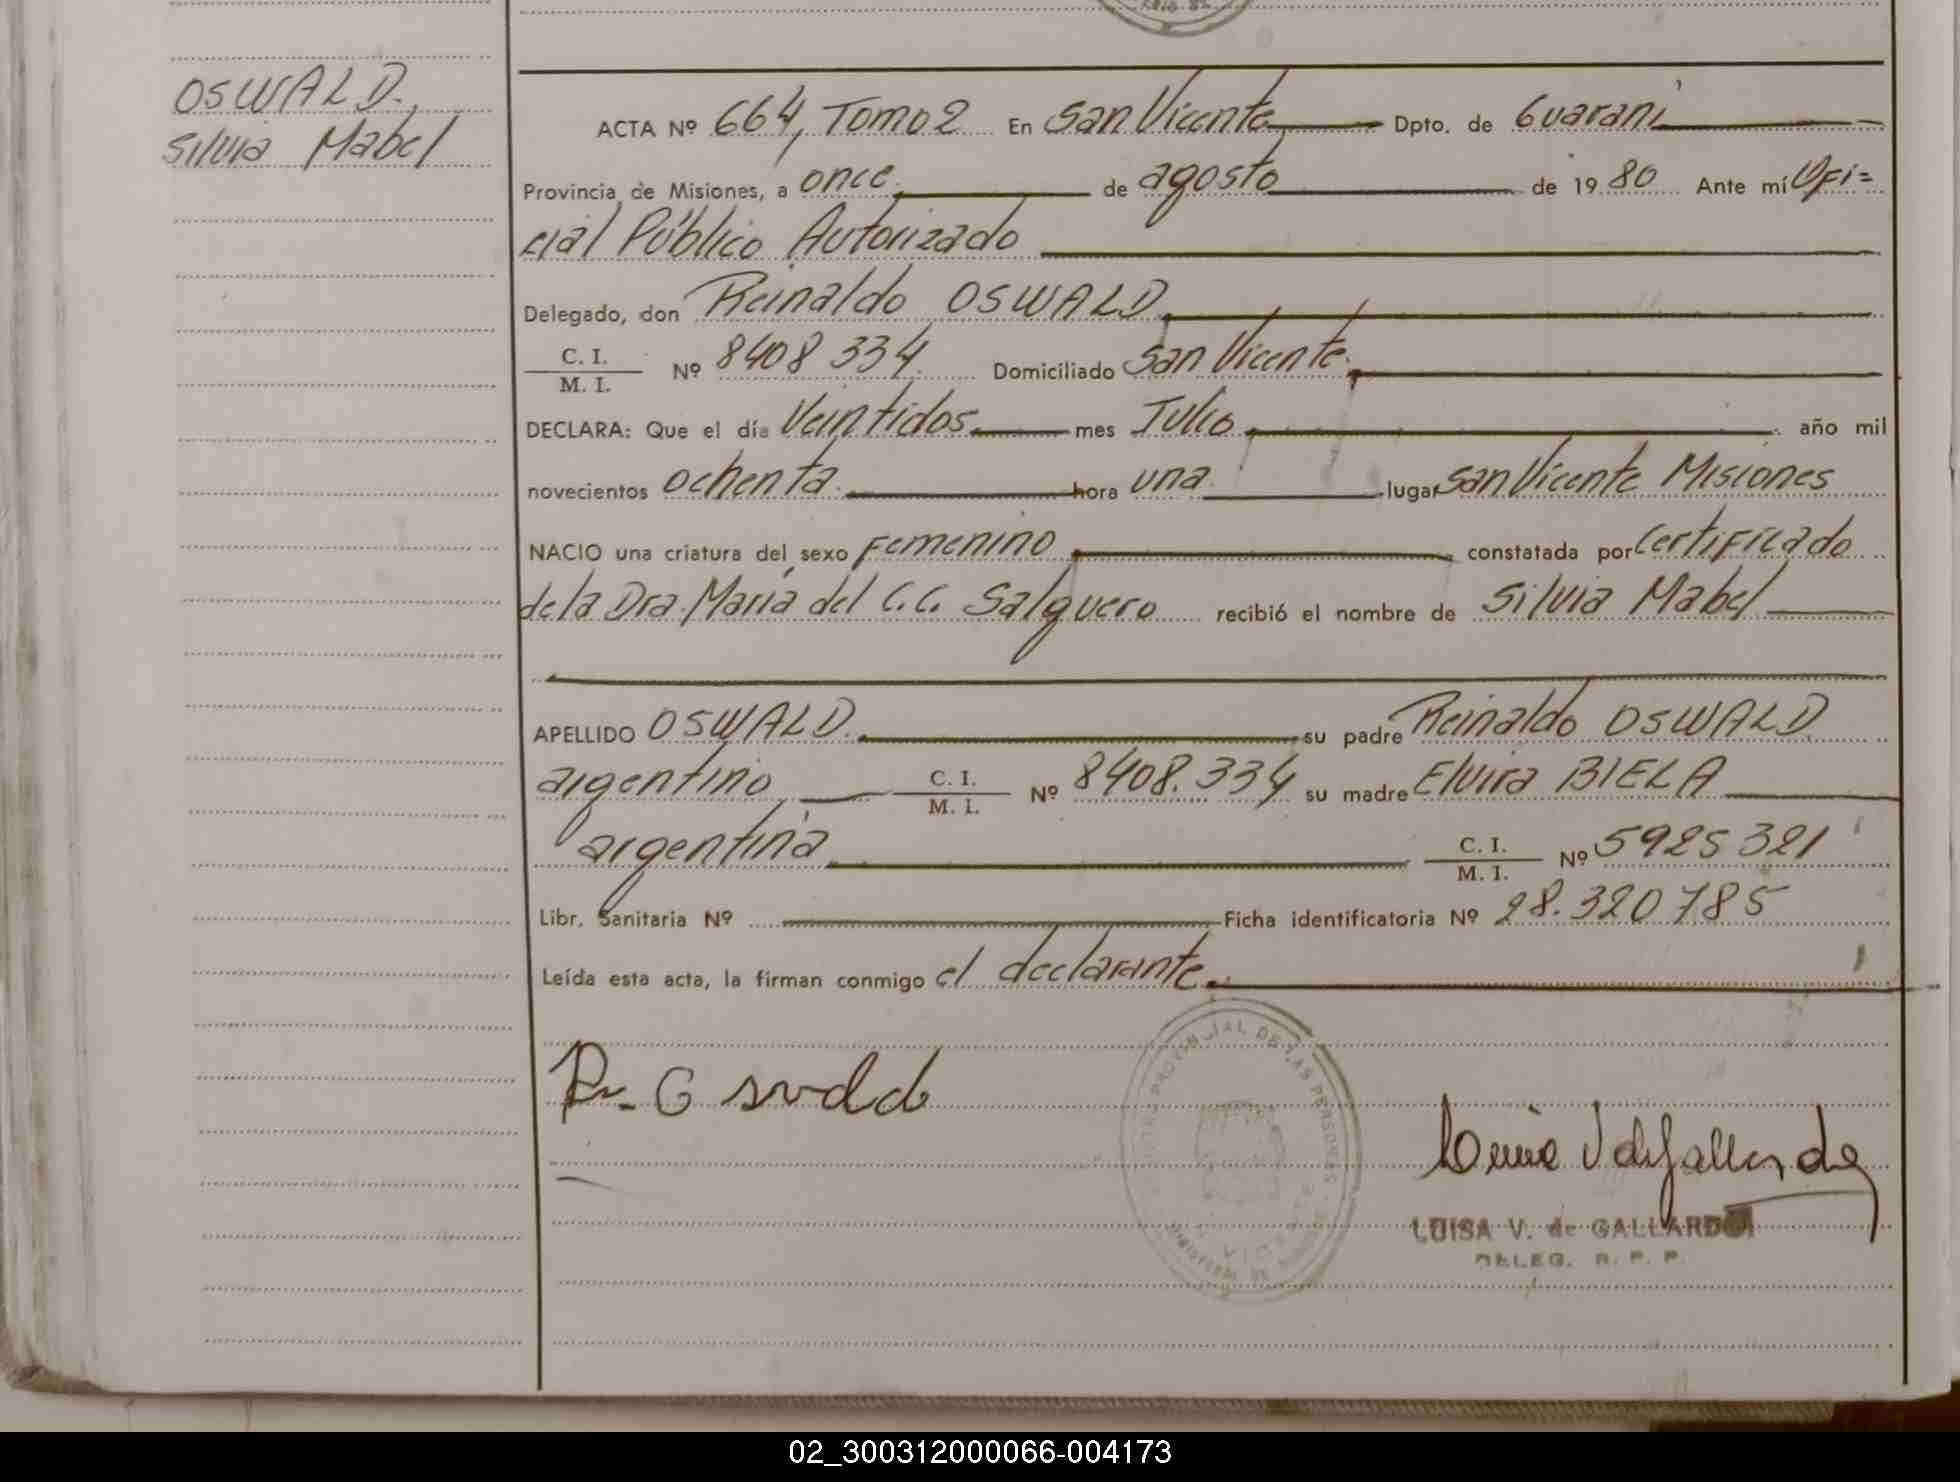 OSWALD.,
Silvia Mabel
ACTA Nº 664, Tomo 2 En San Vicente Dpto. de Guaraní
Provincia de Misiones, a once. de agosto de 19 80 Ante mí Ofi=
cial Público Autorizado
Delegado, don Reinaldo OSWALD
C. I.
M. I. Nº 8408 334. Domiciliado San Vicente.
DECLARA: Que el día Veintidos mes Julio año mil
novecientos ochenta. hora una. lugar San Vicente Misiones
NACIO una criatura del sexo Femenino constatada por Certificado
de la Dra. María del C.C. Salguero recibió el nombre de Silvia Mabel
APELLIDO OSWALD. su padre Reinaldo OSWALD
argentino, C. I.
M. I. Nº 8408.334 su madre Elvira BIELA
argentina C. I.
M. I. Nº 5925 321
Libr. Sanitaria Nº Ficha identificatoria Nº 28.320785
Leída esta acta, la firman conmigo el declarante.
PROVINCIAL DE LAS PERSONAS
VICENTE
LUISA V. de GALLARDO
DELEG. R. P. P.
02_300312000066-004173